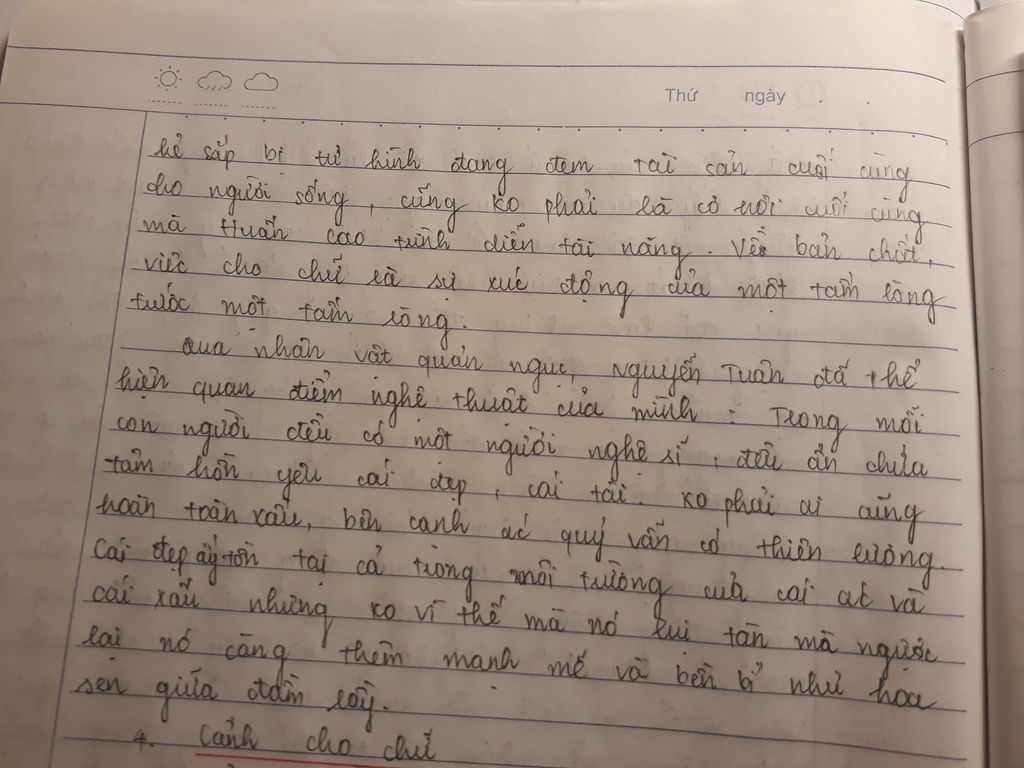 Thứ ngày . .
kẻ sắp bị tử hình đang đem tài sản cuối cùng
cho người sống, cũng ko phải là cơ hội cuối cùng
mà Huấn Cao trình diễn tài năng. Về bản chất,
việc cho chữ là sự xúc động của một tấm lòng
trước một tấm lòng.
Qua nhân vật quản ngục, Nguyễn Tuân đã thể
hiện quan điểm nghệ thuật của mình : Trong mỗi
con người đều có một người nghệ sĩ, đều ẩn chứa
tâm hồn yêu cái đẹp, cái tài. Ko phải ai cũng
hoàn toàn xấu, bên cạnh ác quỷ vẫn có thiên lương.
Cái đẹp ấy tồn tại cả trong môi trường của cái ác và
cái xấu nhưng ko vì thế mà nó lụi tàn mà ngược
lại nó càng thêm mạnh mẽ và bền bỉ như hoa
sen giữa đầm lầy.
4. Cảnh cho chữ